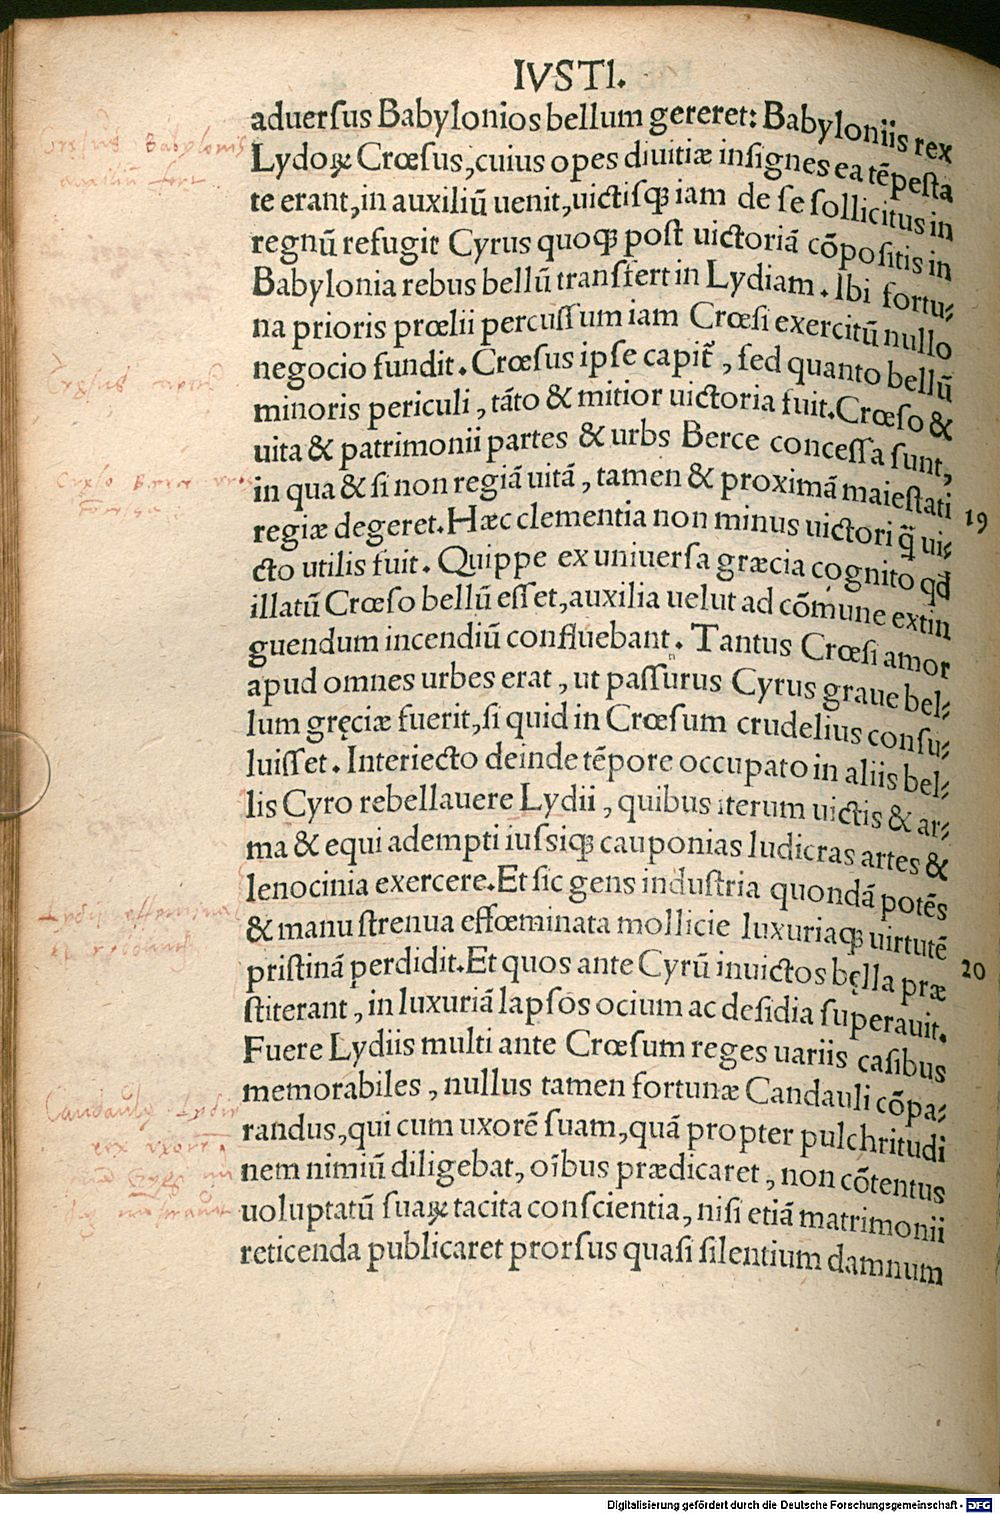 IVSTI.
aduersus Babylonios bellum gereret: Babyloniis rex
Lydoꝝ Crœsus, cuius opes diuitiæ insignes ea tēpesta
te erant, in auxiliū uenit, uictisqꝫ iam de se sollicitus in
regnū refugit Cyrus quoqꝫ post uictoriā cōpositis in
Babylonia rebus bellū transfert in Lydiam. Ibi fortu⸗
na prioris prœlii percussum iam Crœsi exercitū nullo
negocio fundit. Crœsus ipse capit̃, sed quanto bellū
minoris periculi, tāto & mitior uictoria fuit. Crœso &
uita & patrimonii partes & urbs Berce concessa sunt,
in qua & si non regiā uitā, tamen & proximā maiestati
regiæ degeret. Hæc clementia non minus uictori q̃ ui⸗
19
cto utilis fuit. Quippe ex uniuersa græcia cognito qđ
illatū Crœso bellū esset, auxilia uelut ad cōmune extin
guendum incendiū confluebant. Tantus Crœsi amor
apud omnes urbes erat, ut passurus Cyrus graue bel⸗
lum gręciæ fuerit, si quid in Crœsum crudelius consu⸗
luisset. Interiecto deinde tēpore occupato in aliis bel⸗
lis Cyro rebellauere Lydii, quibus iterum uictis & ar⸗
ma & equi adempti iussiqꝫ cauponias ludicras artes &
lenocinia exercere. Et sic gens industria quondā potēs
& manu strenua effœminata mollicie luxuriaqꝫ uirtutē
pristinā perdidit. Et quos ante Cyrū inuictos bęlla præ
20
stiterant, in luxuriā lapsos ocium ac desidia superauit.
Fuere Lydiis multi ante Crœsum reges uariis casibus
memorabiles, nullus tamen fortunæ Candauli cōpa⸗
randus, qui cum uxorē suam, quā propter pulchritudi
nem nimiū diligebat, oībus prædicaret, non cōtentus
uoluptatū suaꝝ tacita conscientia, nisi etiā matrimonii
reticenda publicaret prorsus quasi silentium damnum
Babylonis
auxiliū fert
Digitalisierung gefördert durch die Deutsche Forschungsgemeinschaft - DFG